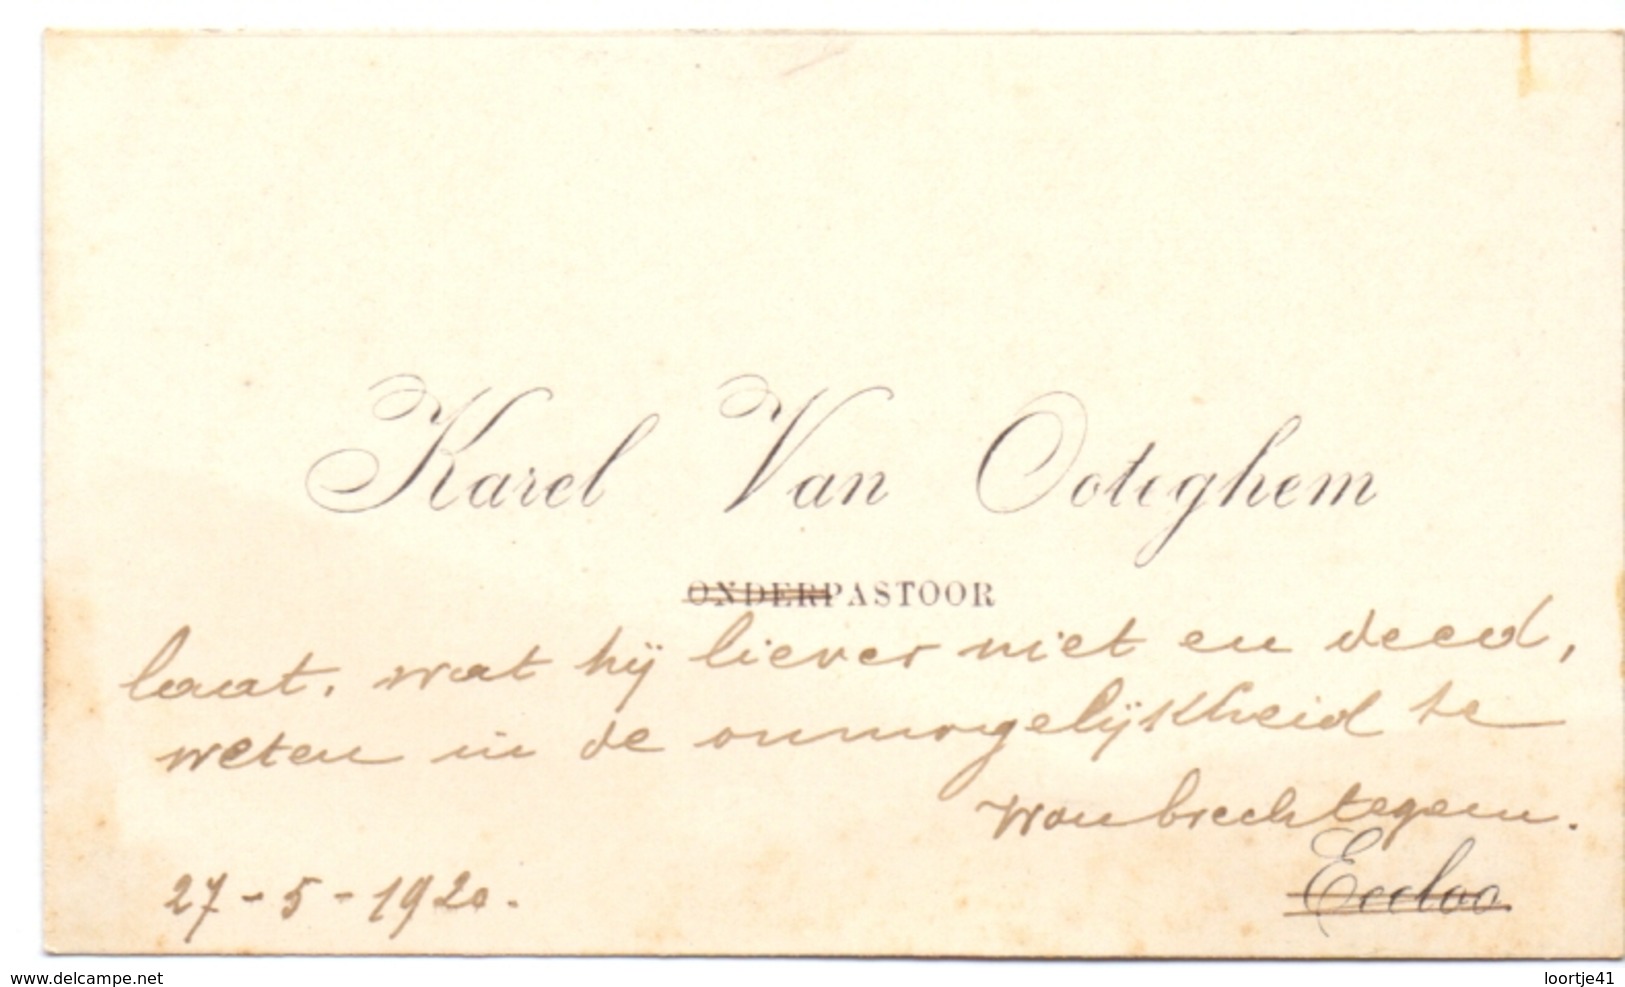 Karel Van Ooteghem
ONDERPASTOOR
laat, wat hij liever niet en deed,
weten in de onmogelijkheid te
Woubrechtegem.
Eecloo
27-5-1920.
www.delcampe.net
loortje41